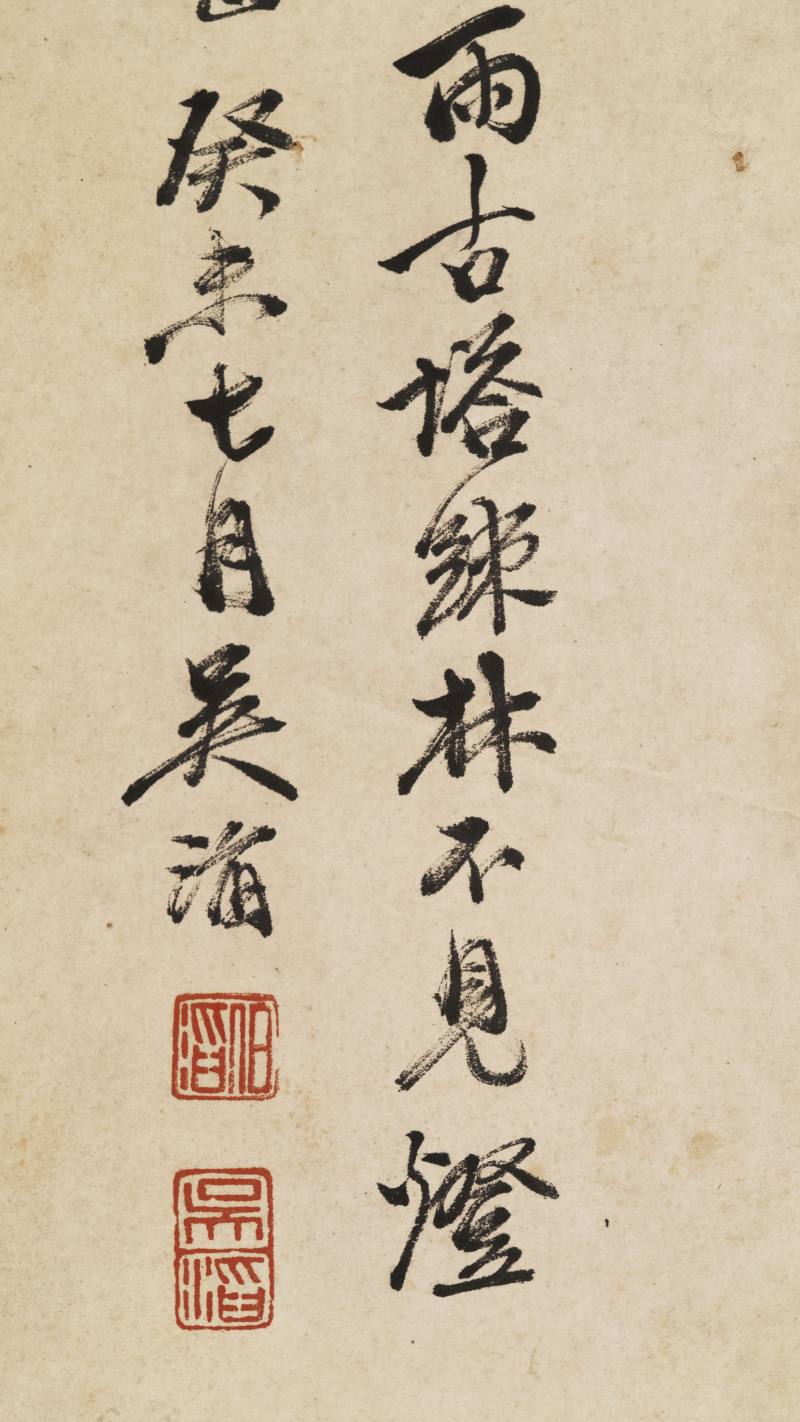 雨古塔踈林不見燈
癸未七月吳滔
伯滔
吳滔